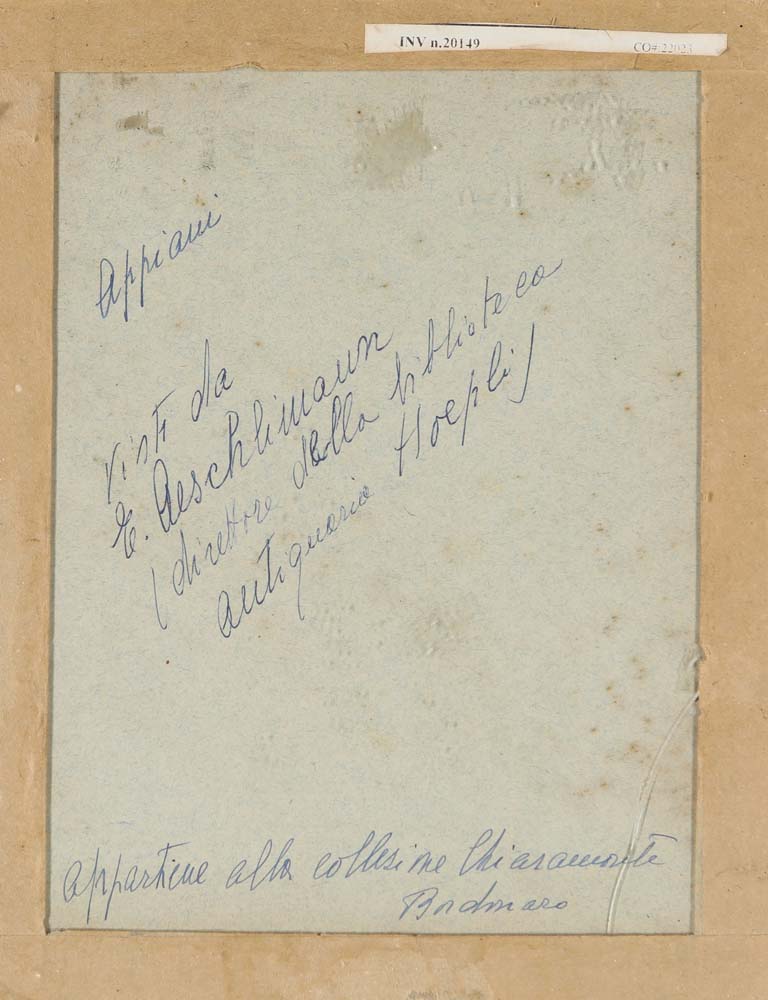 INV n.20149 CO# 22023
Appiani
visti da
E. Aeschlimann
(direttore della biblioteca
antiquaria Hoepli)
appartiene alla collesione Chiaramonte
Bordonaro